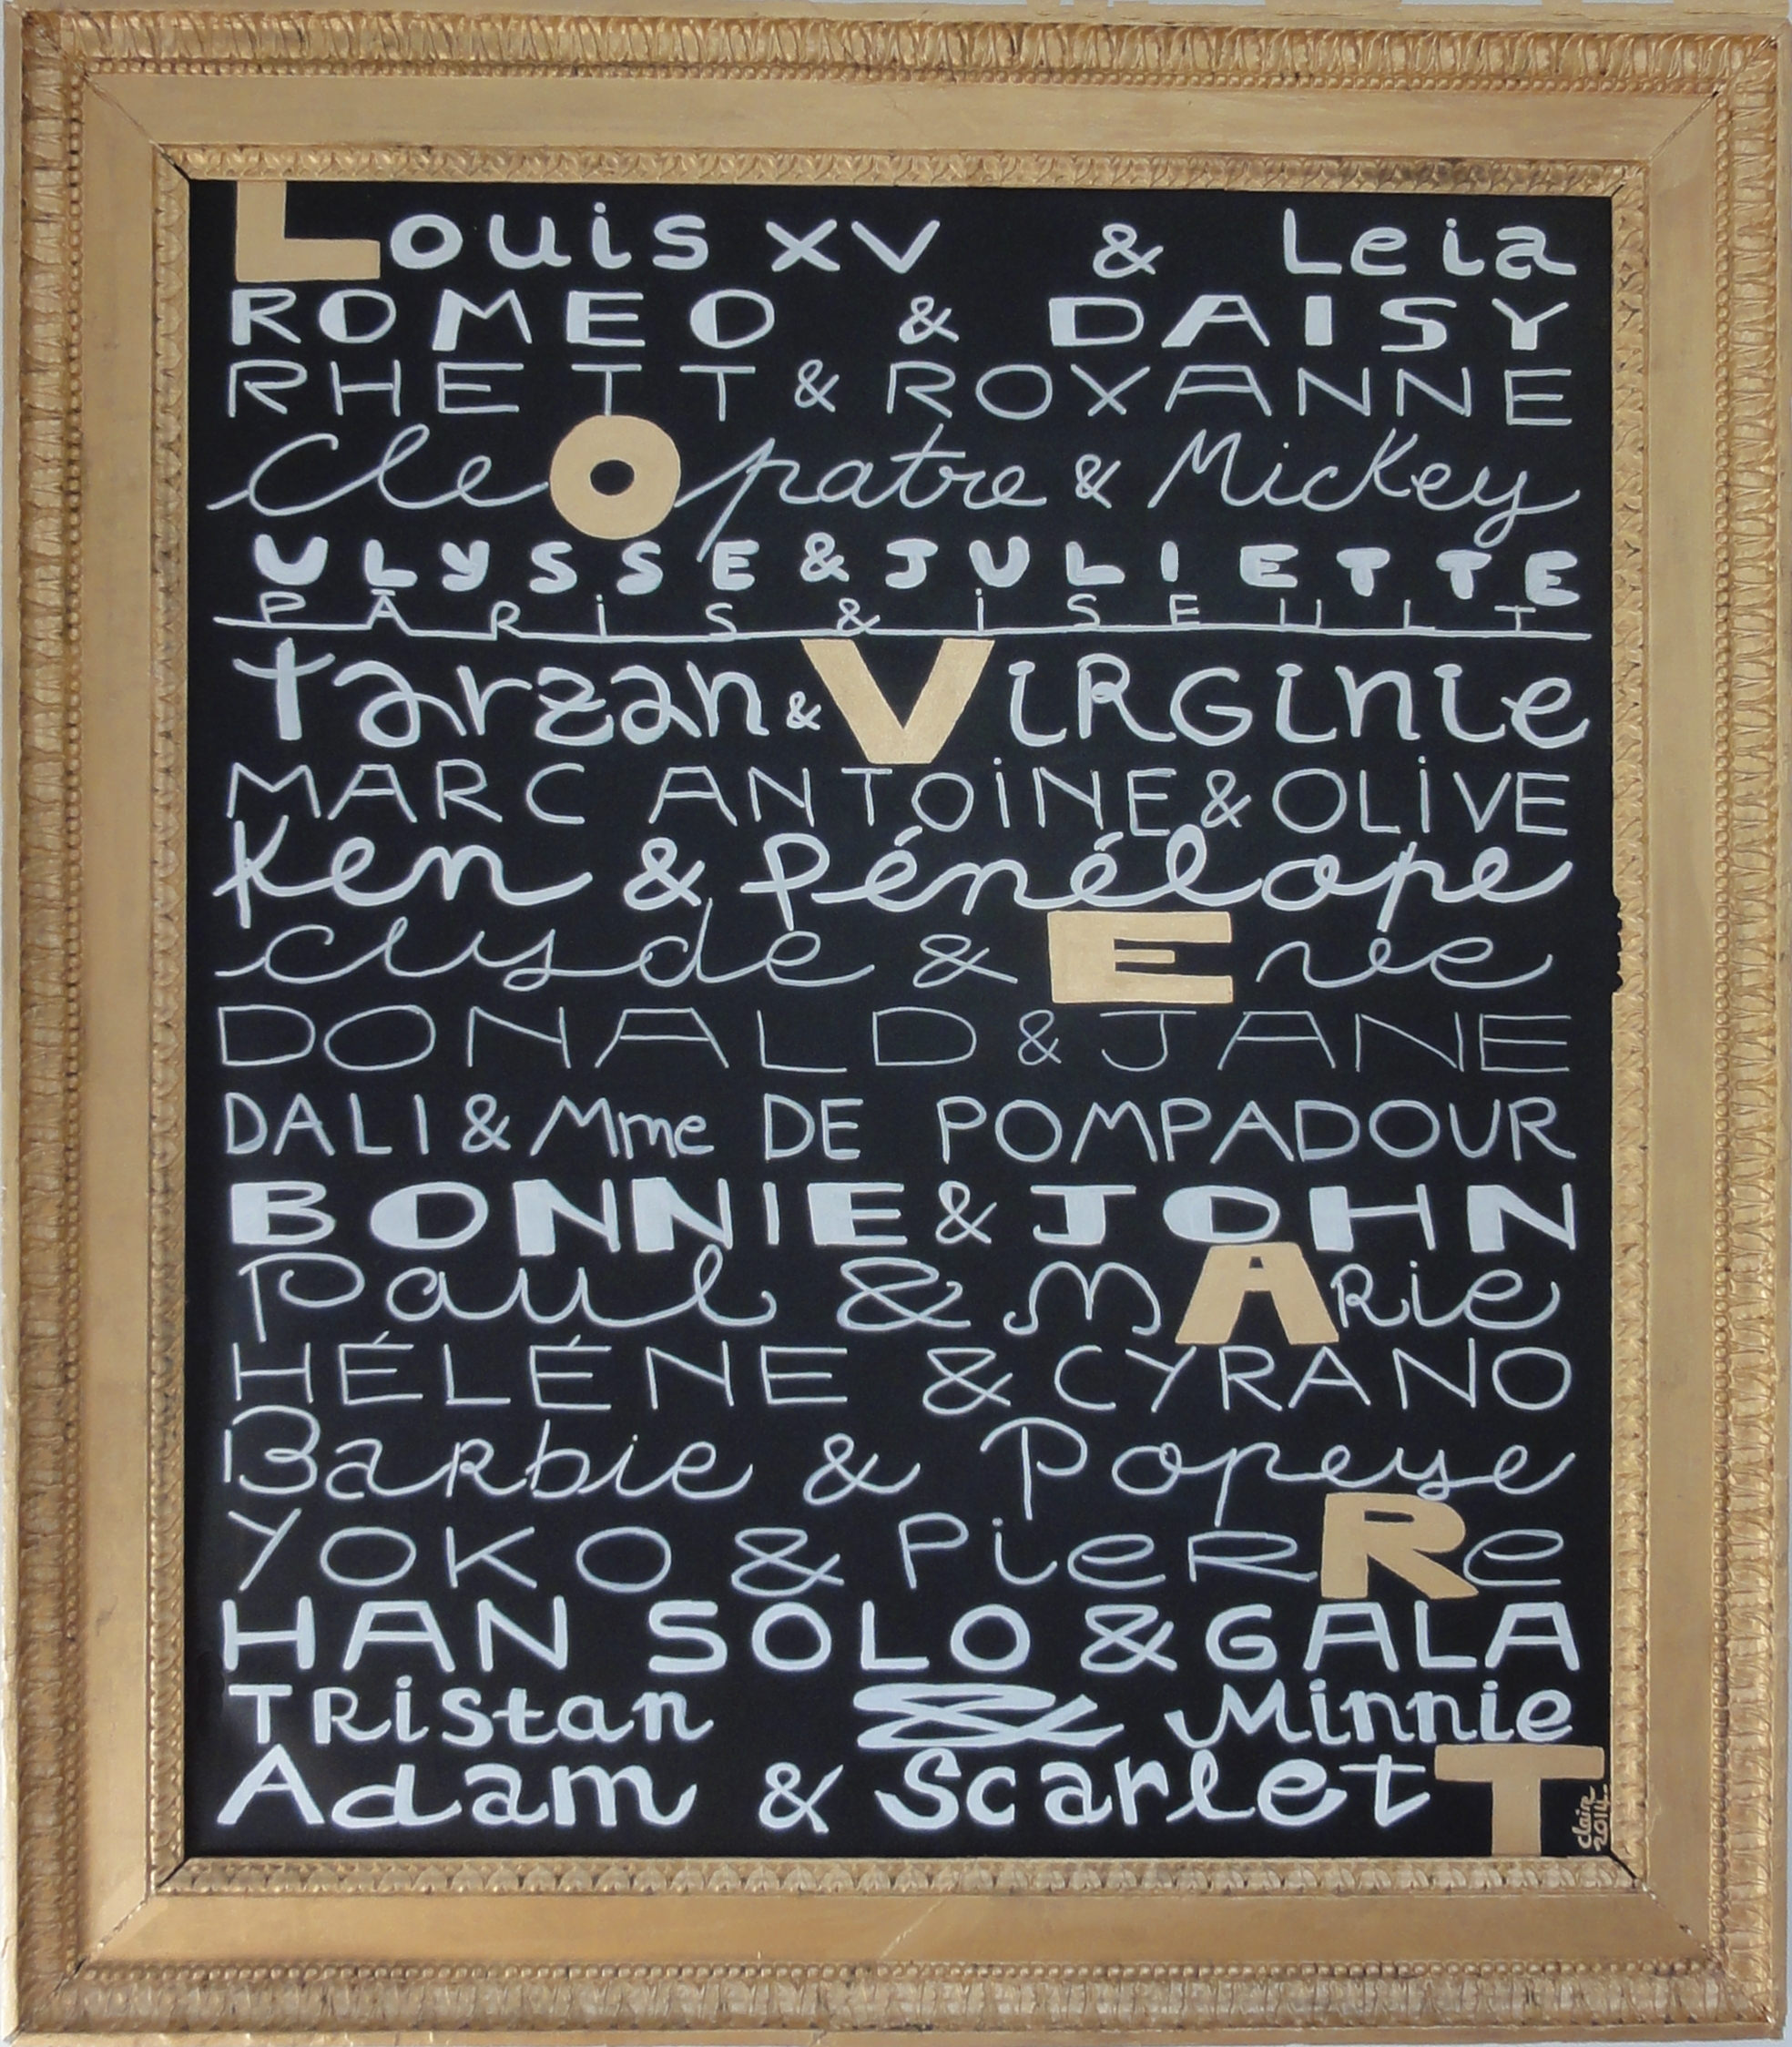 Louis XV & Leia
ROMEO & DAISY
RHETT & ROXANNE
Cleopatre & Mickey
ULYSSE & JULIETTE
PARiS & iSEULT
Tarzan & ViRGinie
MARC ANTOiNE & OLiVE
Ken & Pénélope
Clyde & Eve
DONALD & JANE
DALI & Mme DE POMPADOUR
BONNIE & JOHN
Paul & MARie
HÉLÉNE & CYRANO
Barbie & Popeye
YOKO & PieRRe
HAN SOLO & GALA
TRistan & Minnie
Adam & ScarletT
Claire
2014